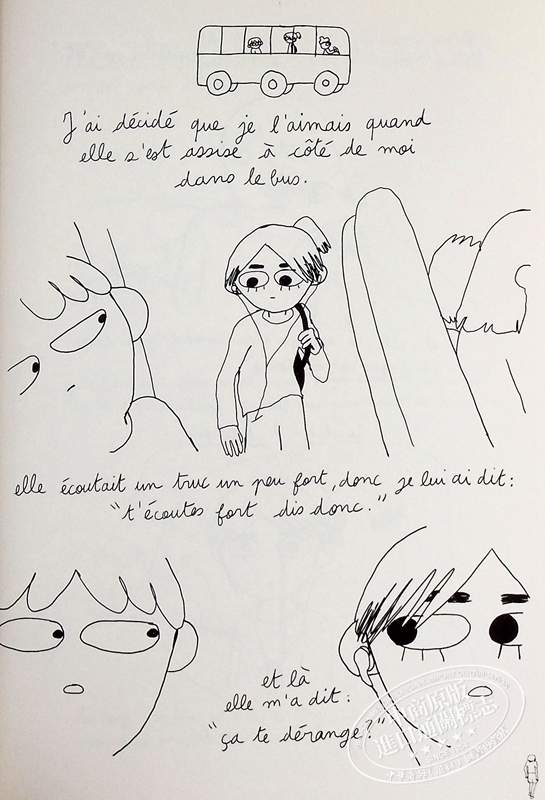 J'ai décidé que je l'aimais quand
elle s'est assise à côté de moi
dans le bus.
elle écoutait un truc un peu fort, donc je lui ai dit :
"t'écoutes fort dis donc."
et là
elle m'a dit :
"ça te dérange?"
中商原版
進口原頁標誌